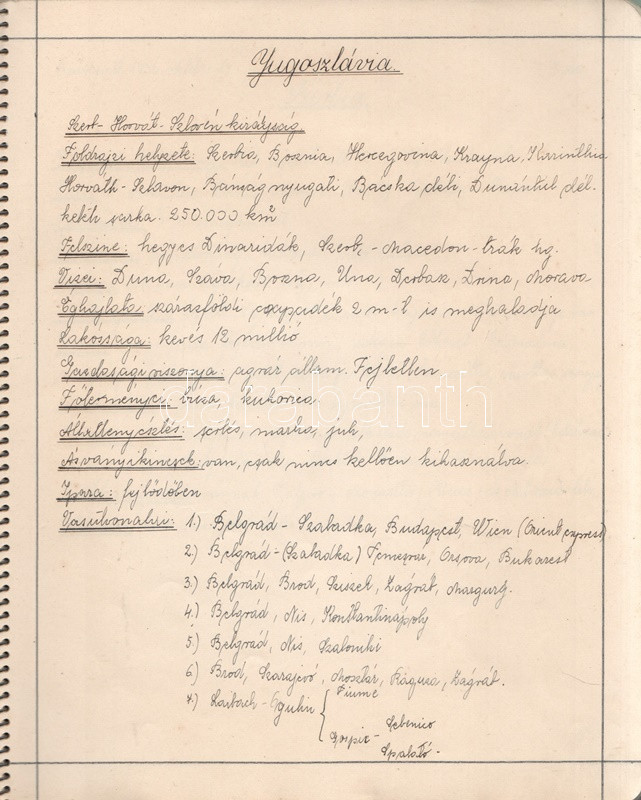 Yugoszlávia.
Szerb - Horvát - Szlovén királyság.
Földrajzi helyzete: Szerbia, Bosznia, Hercegovina, Krayna, Karinthia
Horvath - Szlavon, Bánság nyugati, Bácska déli, Dunántul dél-
keleti sarka. 250.000 km²
Felszine: hegyes Dinaridák, Szerb, - Macedon - trák hg.
Vizei: Duna, Száva, Bozna, Una, Verbasz, Drina, Morava
Éghajlata: szárazföldi 2 m-t is meghaladja
Lakossága: kevés 12 millió
Gazdasági viszonya: agrár állam. Fejletlen
Főterményei: búza, kukorica
Állattenyésztés: sertés, marha, juh,
Ásványikincsek: van, csak nincs kellően kihasználva.
Ipara: fejlődőben
Vasútvonalai: 1.) Belgrád - Szabadka, Budapest, Wien (Orient express)
2.) Belgrád - (Szabadka) Temesvár, Orsova, Bukarest
3.) Belgrád, Brod, Sziszek, Zágráb, Marburg.
4.) Belgrád, Nis, Konstantinápoly
5.) Belgrád, Nis, Szaloniki
6.) Brod, Szarajevó, Mosztár, Raguza, Zágráb.
7.) Laibach - Ogulin { Fiume
Gospic - Sebenico
Spalató -
darabanth